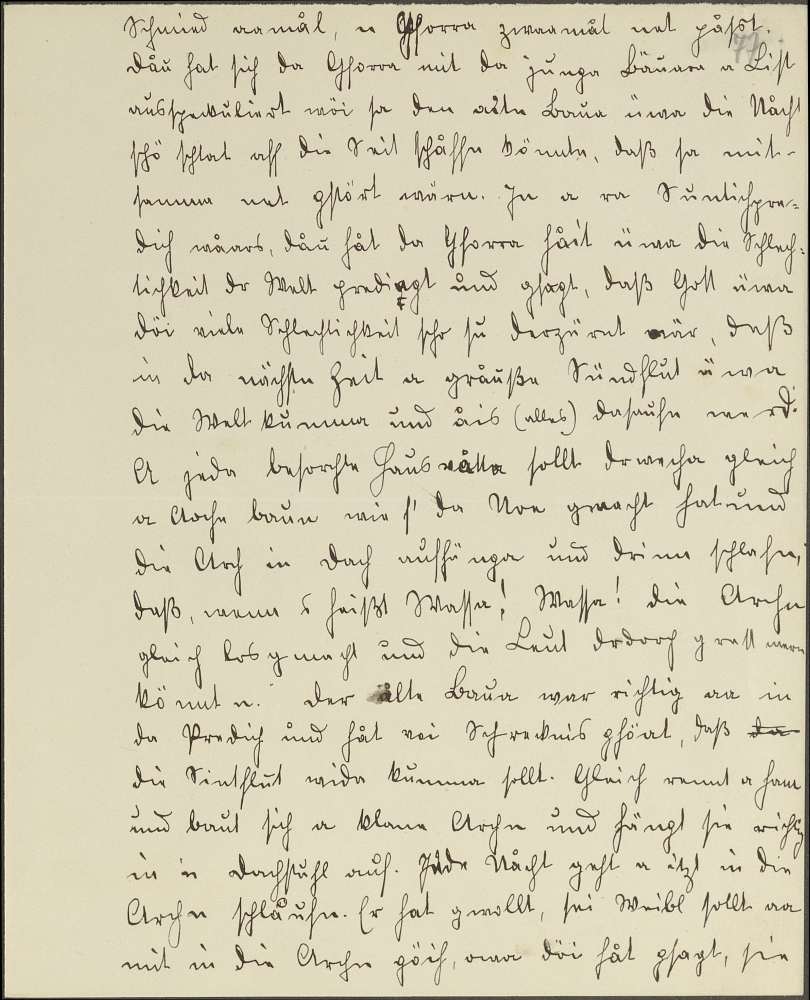 Schmied aamål, n Gforra zwaamål net påßt.
Dåu hat sich da Gforra mit da junga Bäuara a List
ausspekuliert wöi sa den altn Baua üwa die Nåcht
schö schtat aff die Seit schåffn könntn, daß sa mit-
samma net gstört wärn. In a ra Suntichpre-
dich wåars, dåu håt da Gforra håit üwa die Schlech-
tichkeit dr Welt predigt und gsagt, daß Gott üwa
döi viele Schlechtichkeit scho su derzürnt wär, daß
in da nächstn Zeit a gråußa Sündflut üwa
die Welt kumma und åis (alles) dasaufn werd.
A jeda besorchte Hausvåtta sollt drwecha gleich
a Arche baun wie s' da Noe gmacht hat und
die Arch in Dach aufhänga und drinn schlafn,
daß, wenn s heißt Wassa! Wassa! die Archn
gleich losgmacht und die Leut drdorch grett wern
könntn. Der ålte Baua war richtig aa in
da Predich und håt vei Schrecknis ghöat, daß da
die Sintflut wida kumma sollt. Gleich rennt a ham
und baut sich a klane Archn und hängt sie richtig
in 'n Dachstuhl auf. Jede Nåcht geht a itzt in die
Archn schlåufn. Er hat gwollt, sei Weibl sollt aa
mit in die Archn göih, owa döi håt gsagt, sie